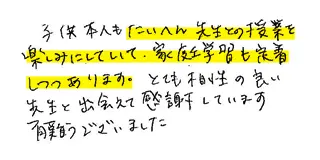 子供本人もたいへん先生との授業を
楽しみにしていて、家庭学習も定着
しつつあります。とても相性の良い
先生と出会えて感謝しています
有難うございました